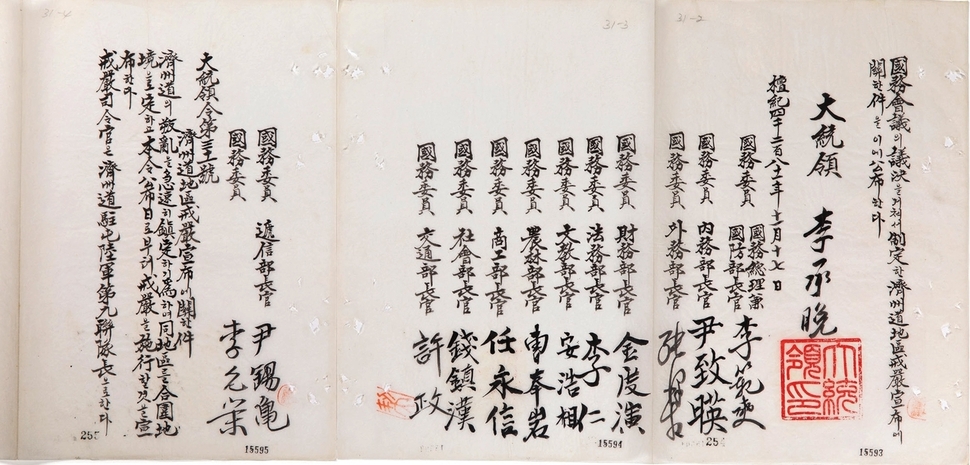 31-2
國務會議의 議決을 거쳐서 制定한 濟州道地區戒嚴宣布에
關한 件을 이에 公布한다
大統領 李承晩
大統領印
檀紀四千二百八十一年 十一月 十七日
國務總理兼
國務委員 國防部長官 李範奭
國務委員 內務部長官 尹致暎
國務委員 外務部長官
15593
31-3
國務委員 財務部長官 金度演
國務委員 法務部長官 李仁
國務委員 文敎部長官 安浩相
國務委員 農林部長官
國務委員 商工部長官 任永信
國務委員 社會部長官 錢鎭漢
國務委員 交通部長官 許政
15594
31-4
國務委員 遞信部長官 尹錫龜
國務委員 李允榮
大統領令第三十一號
濟州道地區戒嚴宣布에 關한 件
濟州道의 叛亂을 急速히 鎭定하기 爲하여 同地區를 合圍地
境으로 定하고 本令 公布日로부터 戒嚴을 施行할 것을 宣
布한다
戒嚴司令官은 濟州道駐屯陸軍第九聯隊長으로 한다
255
15595